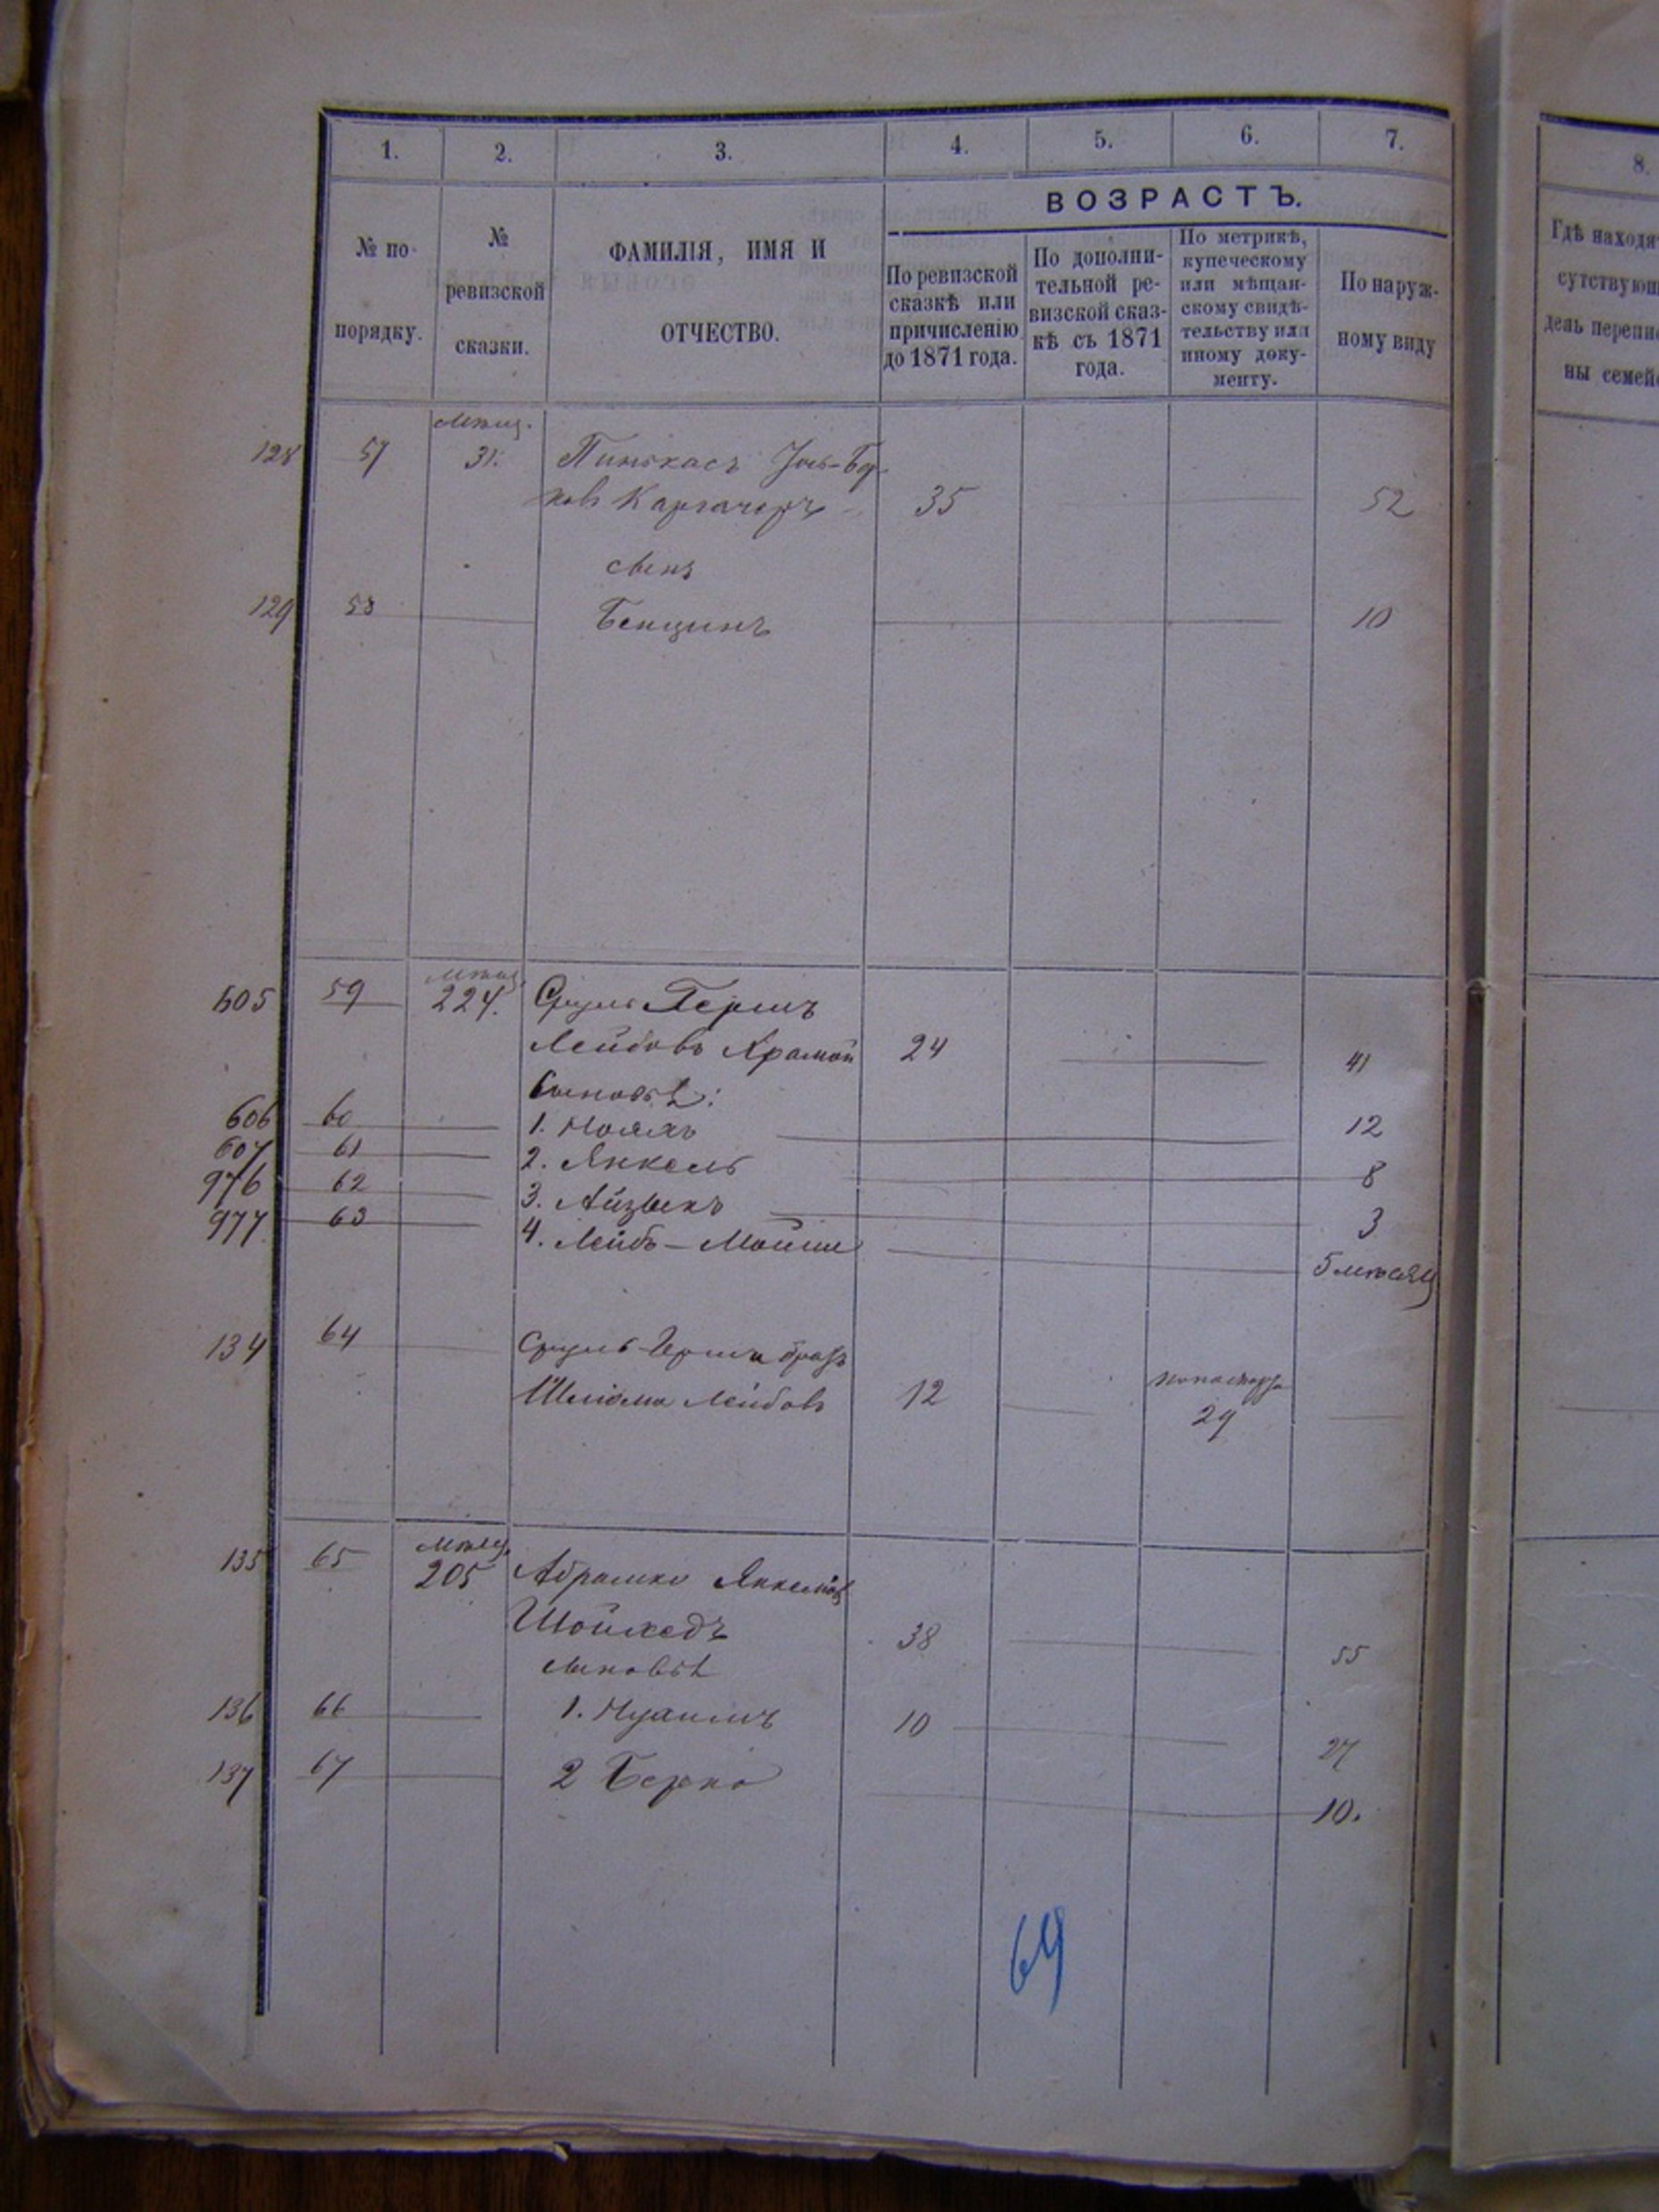 1. 2. 3. 4. 5. 6. 7.
8.
ВОЗРАСТЪ.
№ по порядку.
№ ревизской сказки.
ФАМИЛІЯ, ИМЯ И
ОТЧЕСТВО.
По ревизской
сказкѣ или
причисленію
до 1871 года.
По дополни-
тельной ре-
визской сказ-
кѣ съ 1871
года.
По метрикѣ,
купеческому
или мѣщан-
скому свидѣ-
тельству или
иному доку-
менту.
По наруж-
ному виду
Гдѣ находя
сутствующ
день перепи
ны семей
мѣщ.
128 57 31. Пинкасъ
35 52
сынъ
129 58 Бенционъ 10
мѣщ
605 59 224. Сруль Гершъ
Лейбовъ 24 41
Сыновья:
606 60 1. Ноахъ 12
607 61 2. Янкель 8
976 62 3. Айзыкъ 3
977 63 4. Лейбъ-Мойше
5 мѣсяц
134 64 Сруль Герша братъ
Шлиома Лейбовъ 12 29
мѣщ.
135 65 205 Абрамко Янкелев
Шойхедъ 38 55
сыновья
136 66 1. 10 27
137 67 2 Берко 10.
64